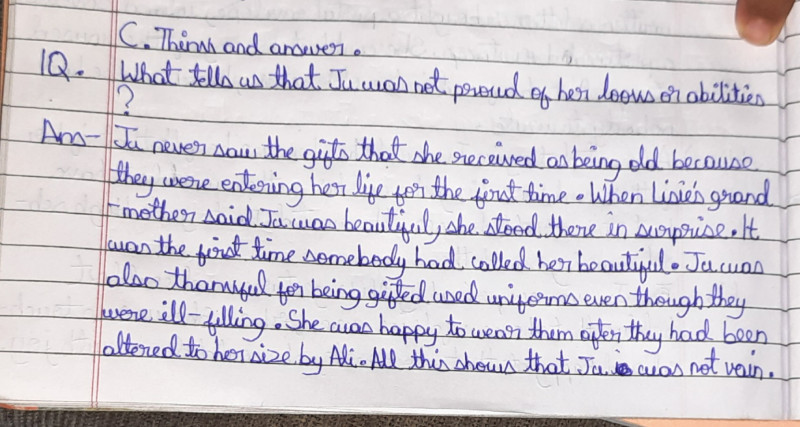 C. Think and answer.
1Q. What tells us that Ju was not proud of her looks or abilities
?
Ans- Ju never saw the gifts that she received as being old because
they were entering her life for the first time. When Lisie's grand
-mother said Ju was beautiful, she stood there in surprise. It
was the first time somebody had called her beautiful. Ju was
also thankful for being gifted used uniforms even though they
were ill-filling. She was happy to wear them after they had been
altered to her size by Ali. All this shows that Ju was not vain.